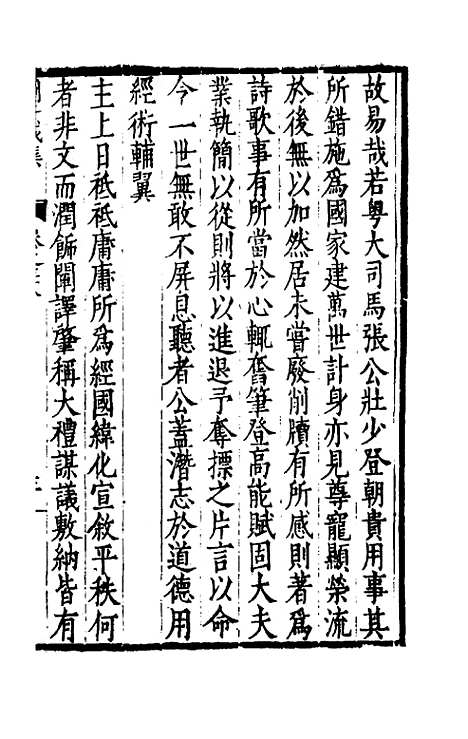 故易哉若粵大司馬張公壯少登朝貴用事其
所錯施爲國家建萬世計身亦見尊寵顯榮流
於後無以加然居未嘗廢削牘有所感則著爲
詩歌事有所當於心輒奮筆登高能賦固大夫
業執簡以從則將以進退予奪摽之片言以命
今一世無敢不屏息聽者公蓋潛志於道德用
經術輔翼
主上日祗祗庸庸所爲經國緯化宣敘平秩何
者非文而潤飾闡譯肇稱大禮謀議敷納皆有